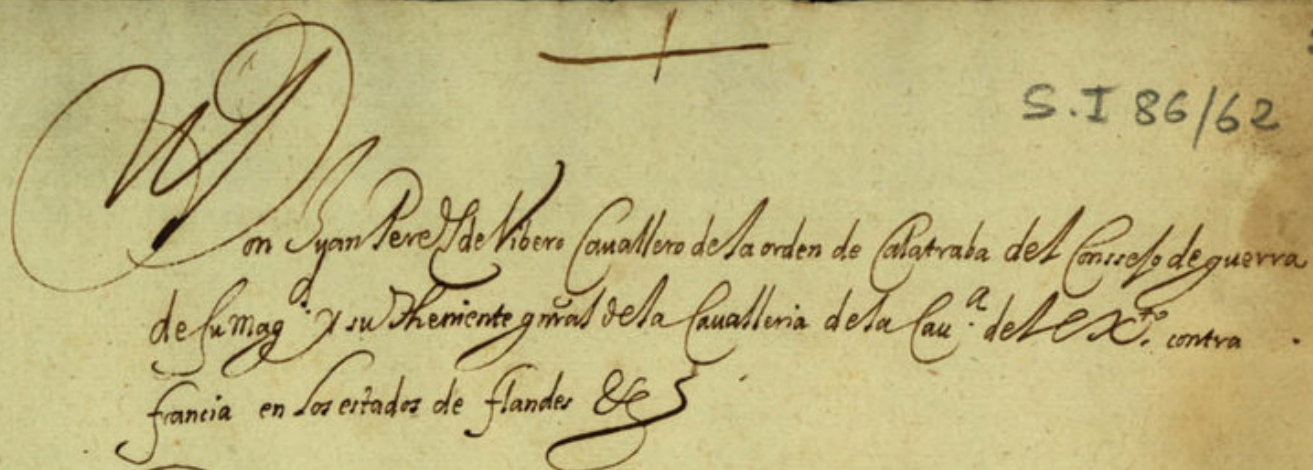 S.I 86/62
Don Juan Perez de Vibero Cauallero de la orden de Calatraba del Conssejo de guerra
de su Mag.ᵈ y su Theniente gnral de la Cavalleria de la Cau.ª del exᵗᵒ. contra
francia en los estados de flandes &c